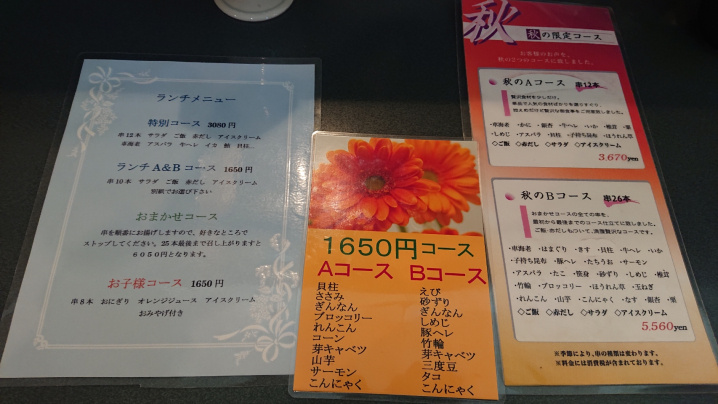 ランチメニュー
特別コース 3080円
串12本 サラダ ご飯 赤だし アイスクリーム
車海老 アスパラ 牛ヘレ イカ 鮪 貝柱...
ランチA&Bコース 1650円
串10本 サラダ ご飯 赤だし アイスクリーム
別紙でお選び下さい
おまかせコース
串を順番にお揚げしますので、好きなところで
ストップしてください。25本最後まで召し上がりますと
6050円となります。
お子様コース 1650円
串8本 おにぎり オレンジジュース アイスクリーム
おみやげ付き
1650円コース
Aコース
貝柱
ささみ
ぎんなん
ブロッコリー
れんこん
コーン
芽キャベツ
山芋
サーモン
こんにゃく
Bコース
えび
砂ずり
ぎんなん
しめじ
豚ヘレ
竹輪
芽キャベツ
三度豆
タコ
こんにゃく
秋
秋の限定コース
秋の2つのコースに致しました。
秋のAコース 串12本
贅沢食材を少しだけ。
・車海老 ・かに ・銀杏 ・牛ヘレ ・いか ・椎茸 ・栗
・しめじ ・アスパラ ・貝柱 ・子持ち昆布 ・ほうれん草
◇ご飯 ◇赤だし ◇サラダ ◇アイスクリーム
3,670yen
秋のBコース 串26本
おまかせコースの全ての串を、
最初から最後までのコース仕立てに致しました。
ご飯・赤だしもついて、満腹贅沢なコースです。
・車海老 ・はまぐり ・きす ・貝柱 ・牛ヘレ ・いか
・子持ち昆布 ・豚ヘレ ・たちうお ・サーモン
・アスパラ ・たこ ・笹身 ・砂ずり ・しめじ ・椎茸
・竹輪 ・ブロッコリー ・ほうれん草 ・玉ねぎ
・れんこん ・山芋 ・こんにゃく ・なす ・銀杏 ・栗
◇ご飯 ◇赤だし ◇サラダ ◇アイスクリーム
5,560yen
※季節により、串の種類は変わります。
※料金には消費税が含まれております。